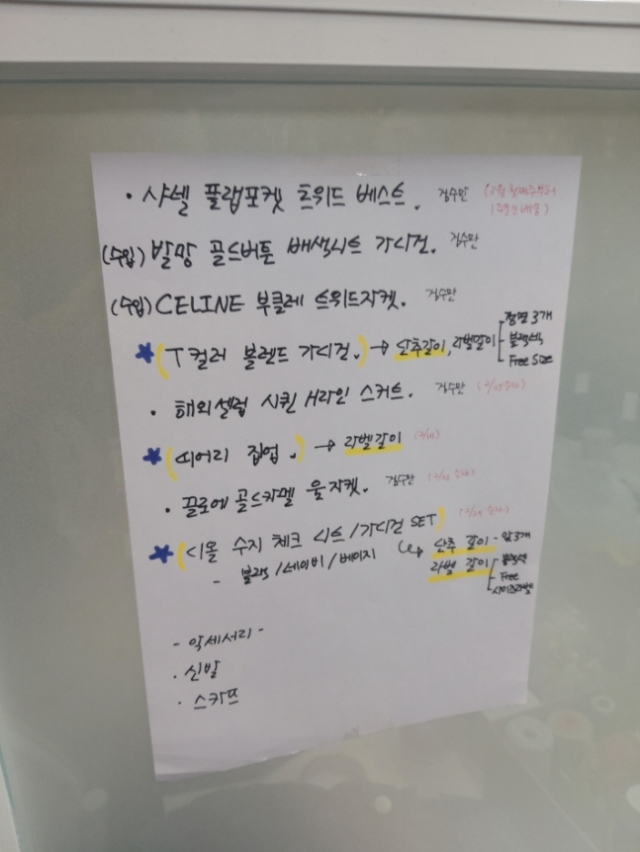 · 샤넬 플랩포켓 트위드 베스트. 검수만
(수입) 발망 골드버튼 배색니트 가디건. 검수만
(수입) CELINE 부클레 트위드자켓. 검수만
★ (T 컬러 블렌드 가디건.) → 단추갈이, 라벨갈이 정면 3개
블랙색
Free Size
· 해외셀럽 시퀸 H라인 스커트. 검수만
★ (띠어리 집업.) → 라벨갈이
· 끌로에 골드카멜 울자켓. 검수만
★ (디올 수지 체크 니트/가디건 SET)
- 블랙/네이비/베이지 단추 갈이 - 앞3개
라벨 갈이
Free
- 악세서리 -
· 신발
· 스카프